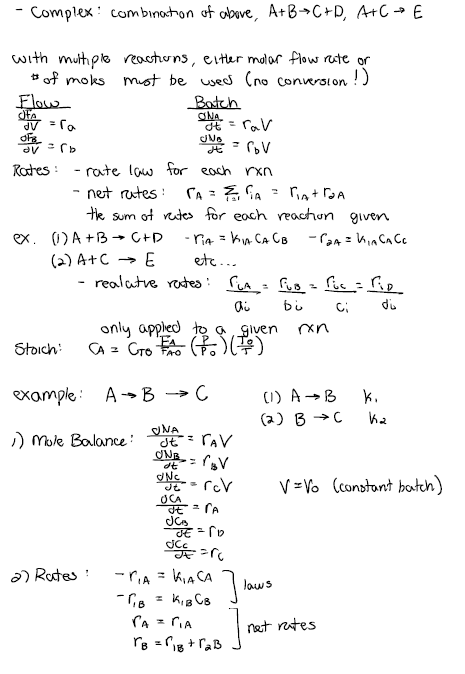 - Complex: combination of above, A+B→C+D, A+C→E
with multiple reactions, either molar flow rate or
# of moles must be used (no conversion!)
Flow Batch
dFA/dV = ra dNA/dt = raV
dFB/dV = rb dNB/dt = rbV
Rates: - rate law for each rxn
- net rates: rA = Σ i=1 riA = r1A + r2A
the sum of rates for each reaction given
ex. (1) A+B → C+D -r1A = k1A CA CB -r2A = k1A CA CC
(2) A+C → E etc...
- realative rates: riA/ai = riB/bi = riC/ci = riD/di
only applied to a given rxn
Stoich: CA = CTO FA/FAO (P/PO) (TO/T)
example: A → B → C (1) A → B k1
(2) B → C k2
1) Mole Balance: dNA/dt = rAV
dNB/dt = rBV
dNC/dt = rCV V = V0 (constant batch)
dCA/dt = rA
dCB/dt = rb
dCC/dt = rc
2) Rates: -r1A = k1A CA
-r1B = k1B CB laws
rA = r1A
rB = r1B + r2B net rates